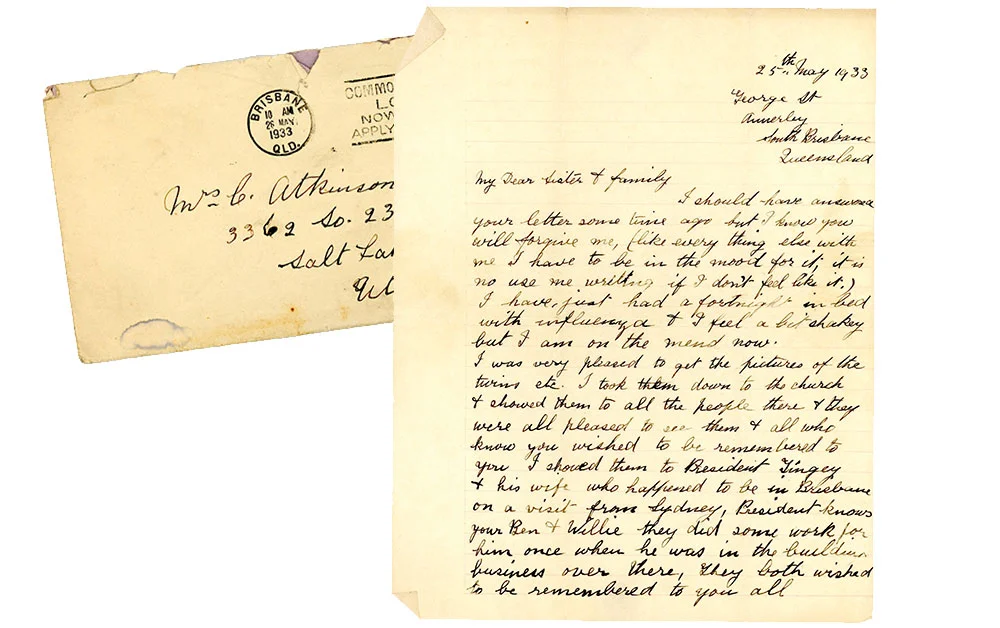 BRISBANE
10 AM
26 MAY
1933
QLD.
COMMO
L
NOW
APPLY
Mrs C. Atkinson
3362 So. 23
Salt La
Ut
25th May 1933
George St
Annerley
South Brisbane
Queensland
My Dear Sister & family
I should have answered
your letter some time ago but I know you
will forgive me, (like every thing else with
me I have to be in the mood for it, it is
no use me writing if I don't feel like it.)
I have just had a fortnight in bed
with influenza & I feel a bit shakey
but I am on the mend now.
I was very pleased to get the pictures of the
twins etc. I took them down to the church
& showed them to all the people there & they
were all pleased to see them & all who
know you wished to be remembered to
you I showed them to President Tingey
& his wife who happened to be in Brisbane
on a visit from Sydney, President knows
your Ben & Willie they did some work for
him once when he was in the building
business over there, they both wished
to be remembered to you all